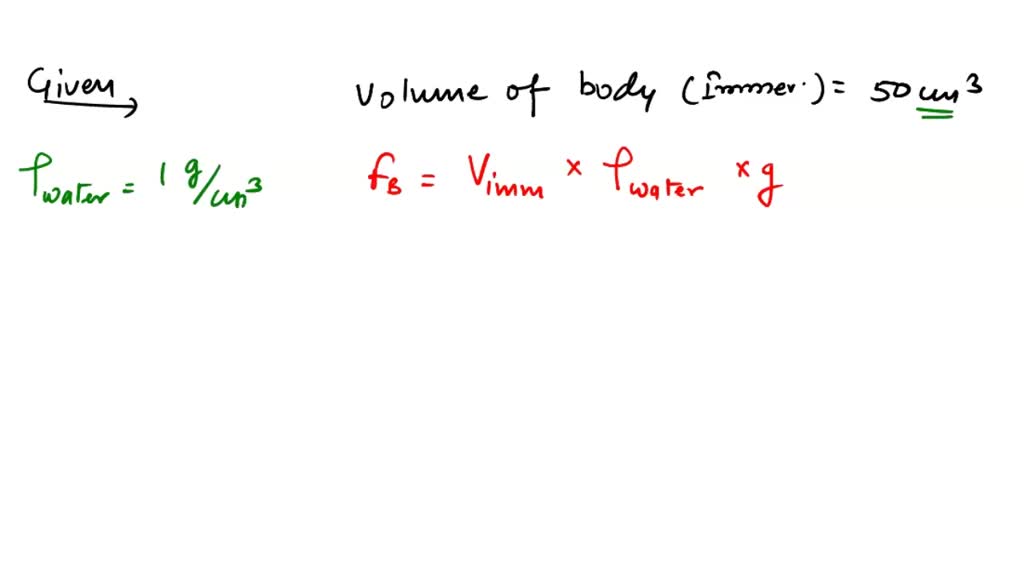 Given
Volume of body (Immer.) = 50 cm³
ρwater = 1 g/cm³
fB = Vimm × ρwater × g